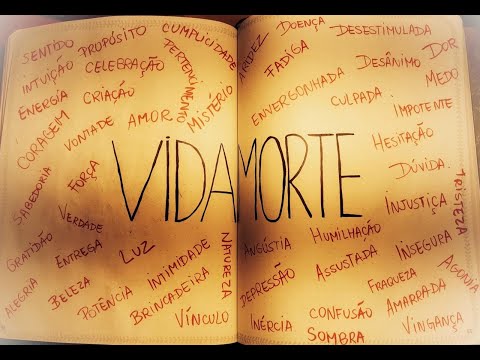 SENTIDO
PROPÓSITO
CUMPLICIDADE
INTUIÇÃO
CELEBRAÇÃO
PERTENCIMENTO
ENERGIA
CRIAÇÃO
MISTÉRIO
CORAGEM
VONTADE
AMOR
SABEDORIA
FORÇA
VIDA
VERDADE
GRATIDÃO
ENTREGA
LUZ
NATUREZA
ALEGRIA
BELEZA
POTÊNCIA
INTIMIDADE
BRINCADEIRA
VÍNCULO
ARIDEZ
DOENÇA
DESESTIMULADA
FADIGA
DESÂNIMO
DOR
MEDO
ENVERGONHADA
CULPADA
IMPOTENTE
HESITAÇÃO
MORTE
DÚVIDA.
TRISTEZA
INJUSTIÇA
ANGÚSTIA
HUMILHAÇÃO
INSEGURA
AGONIA
DEPRESSÃO
ASSUSTADA
FRAQUEZA
AMARRADA
INÉRCIA
CONFUSÃO
SOMBRA
VINGANÇA